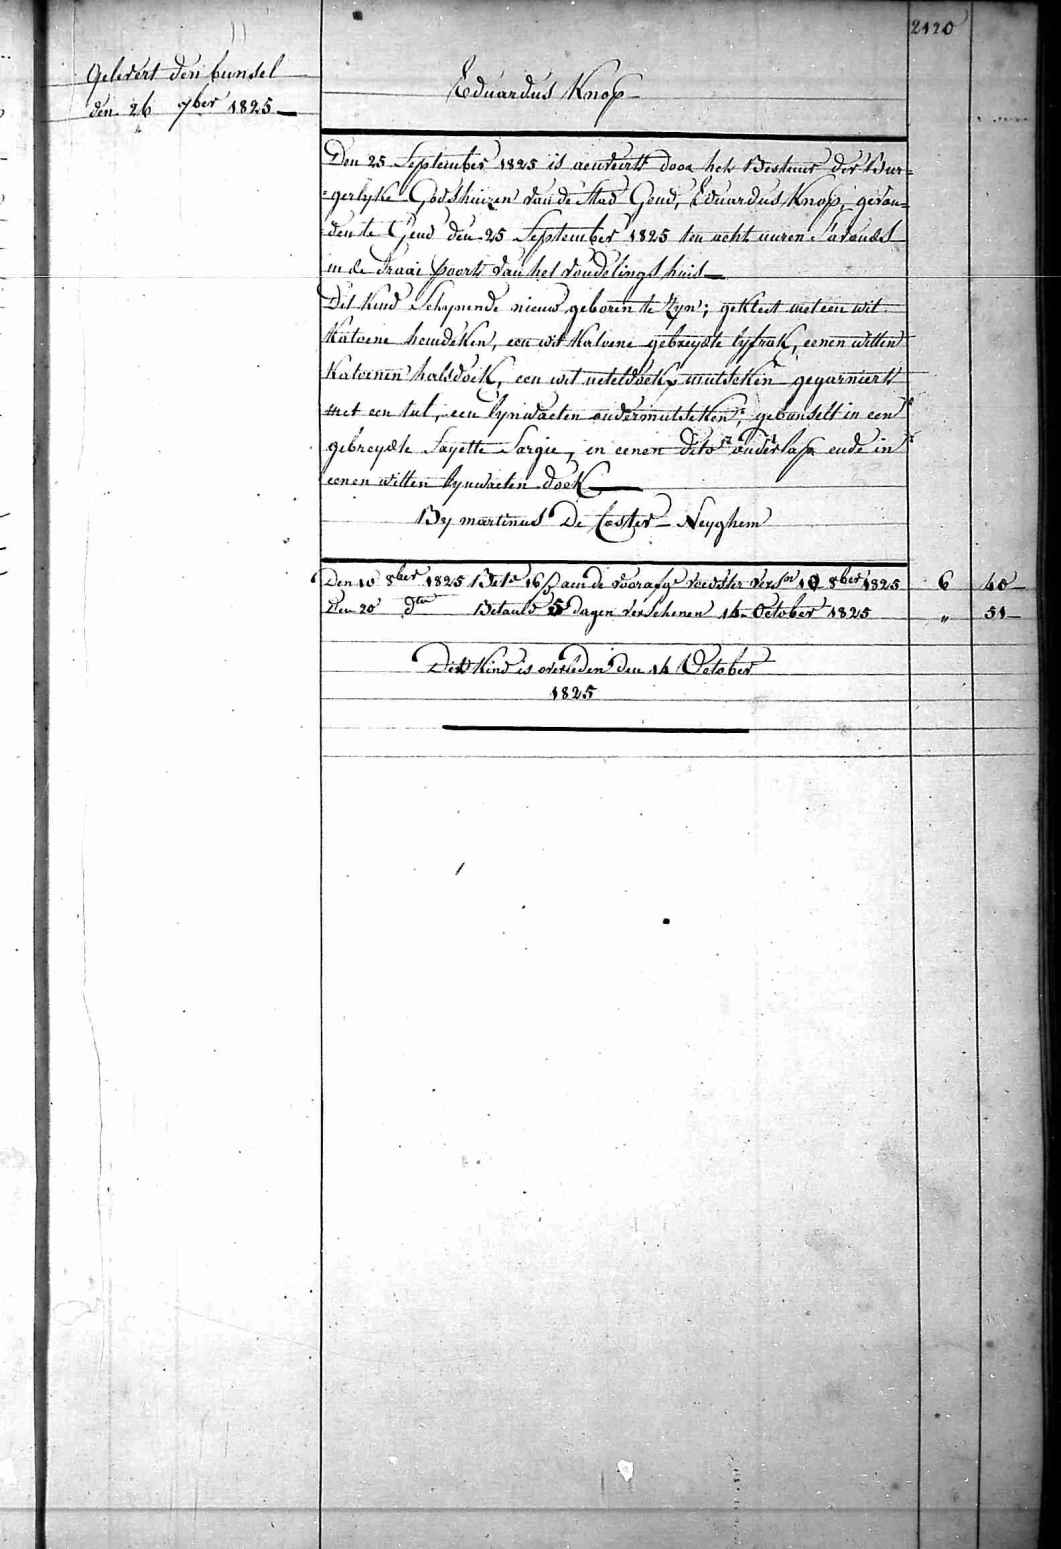 2120
Gelevert den bunsel
den 26 7ber 1825
Eduardus Knop
Den 25 September 1825 is aenveirt door het Bestuur der Bur-
gerlyke Godshuizen van de stad Gend, Eduardus Knop, gevon=
den te Gend den 25 September 1825 ten acht uuren s'avonds
in de draai poort van het vondelings huis
Dit Kind Schynende nieuw geboren te zyn; gekleet met een wit
Katoene hemdeken, een wit Katoene gebreyde lyfrok, eenen witten
Katoenen halsdoek, een wit neteldoek mutseken gegarniert
met een tul, een lynwaeten ondermutseken, gebunselt in een
gebreyde Sayette Sargie, en eenen dito onderlap ende in
eenen witten lynwaeten doek
By martinus De Coster Neyghem
Den 10 8ber 1825 aan de voedster 8ber 1825 6 40
Den 20 dto Betaald 5 dagen verschenen 14 October 1825 „ 51
Dit Kind is overleden den 14 October
1825